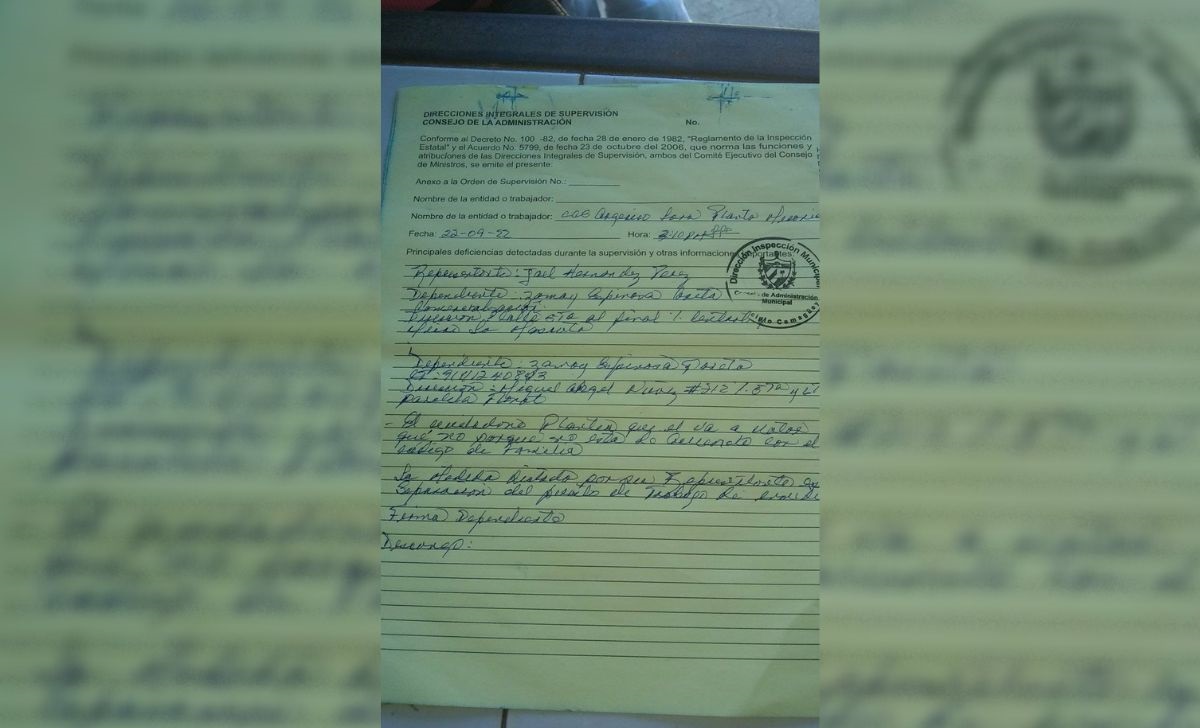 DIRECCIONES INTEGRALES DE SUPERVISIÓN
CONSEJO DE LA ADMINISTRACIÓN No.
Conforme al Decreto No. 100 -82, de fecha 28 de enero de 1982, "Reglamento de la Inspección
Estatal" y el Acuerdo No. 5799, de fecha 23 de octubre del 2006, que norma las funciones y
atribuciones de las Direcciones Integrales de Supervisión, ambos del Comité Ejecutivo del Consejo
de Ministros, se emite el presente:
Anexo a la Orden de Supervisión No.:
Nombre de la entidad o trabajador:
Nombre de la entidad o trabajador: CCS
Fecha: 22-09-22 Hora:
Principales deficiencias detectadas durante la supervisión y otras informaciones importantes:
Dirección Inspección Municipal
de Administración
Municipal
Camagüey
Representante: Jael Hernandez Perez
Dependiente: Zamay Espinosa
Comercialización
Dirección: Calle 5ta al final %
Dependiente: Zamay Espinosa
Dirección: Miguel Angel Nuñez #312 % 5ta y 6
- El vendedor Plantea que el va a votar
que no porque no esta de acuerdo con el
codigo de Familia
La Medida dictada por su Representante es
Separacion del puesto de Trabajo de
Firma Dependiente